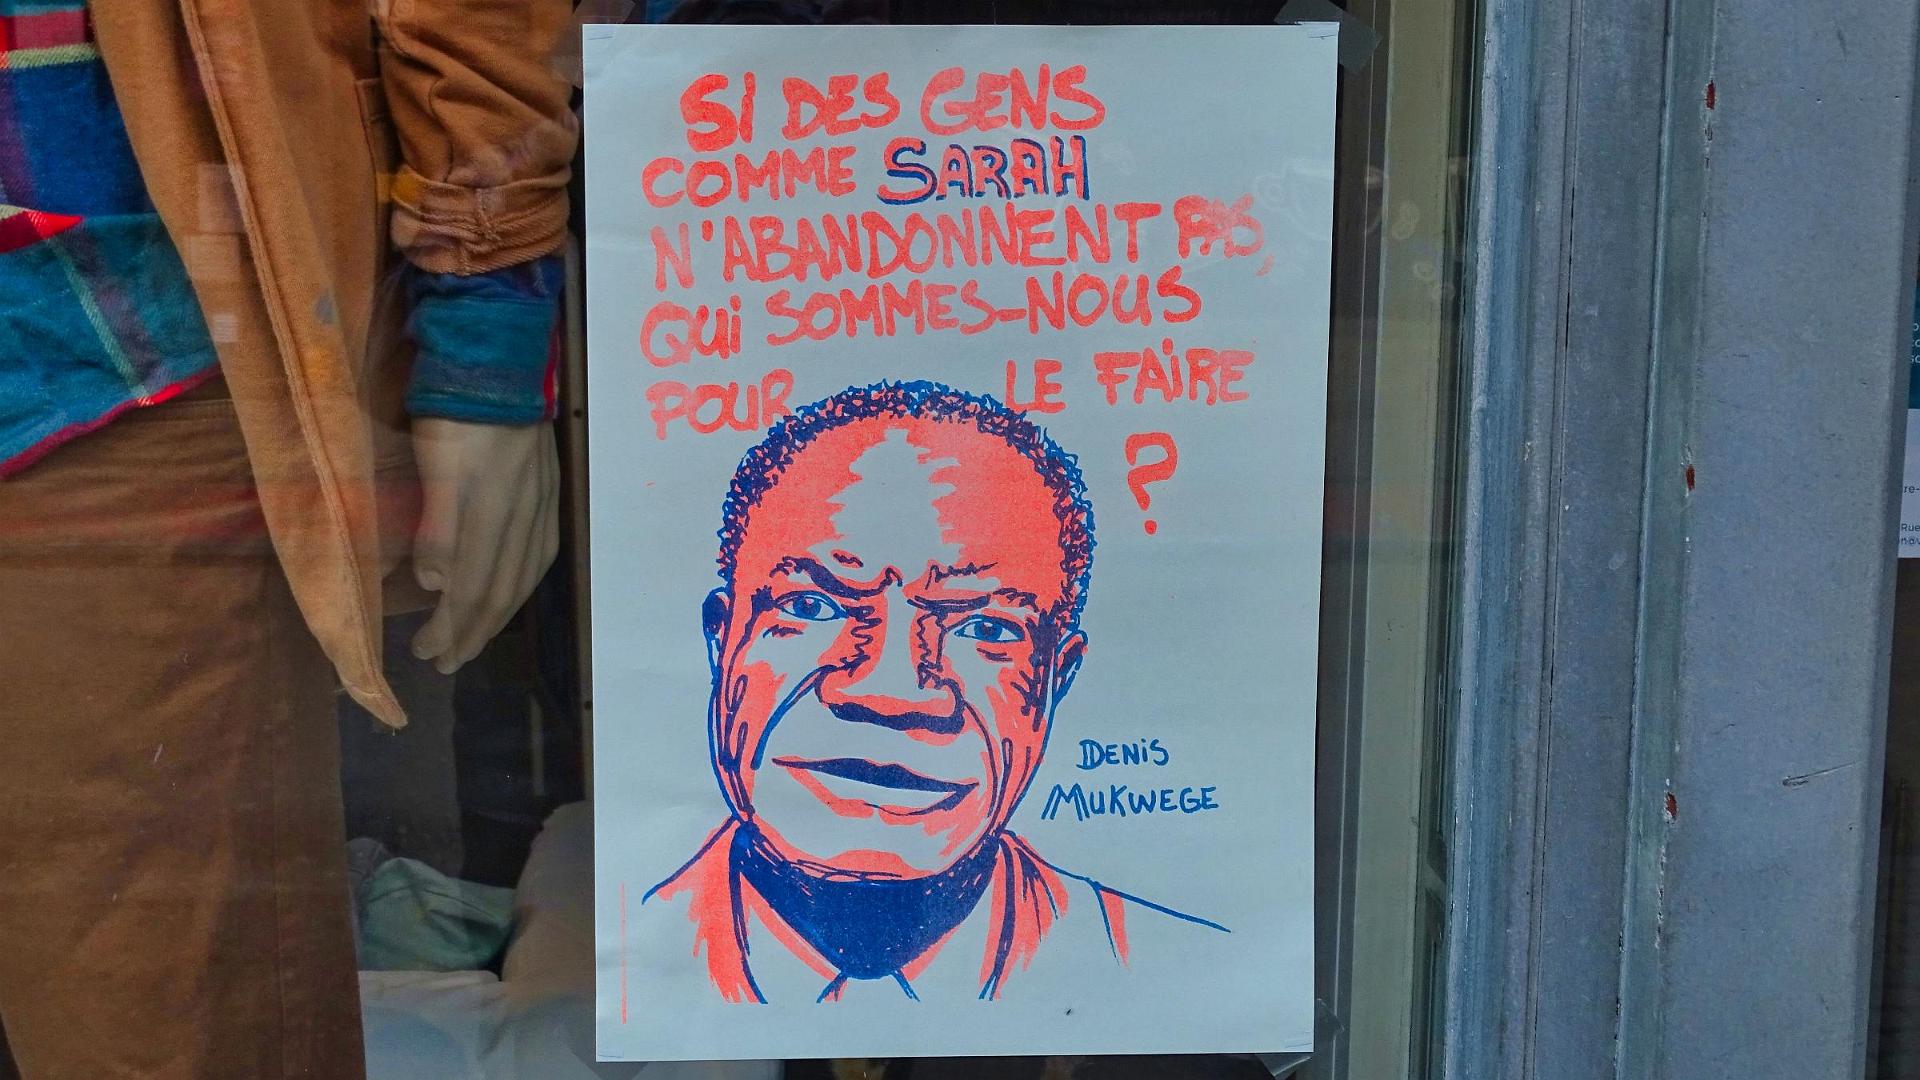 SI DES GENS
COMME SARAH
N'ABANDONNENT PAS,
QUI SOMMES-NOUS
POUR LE FAIRE
?
DENIS
MUKWEGE
Rue